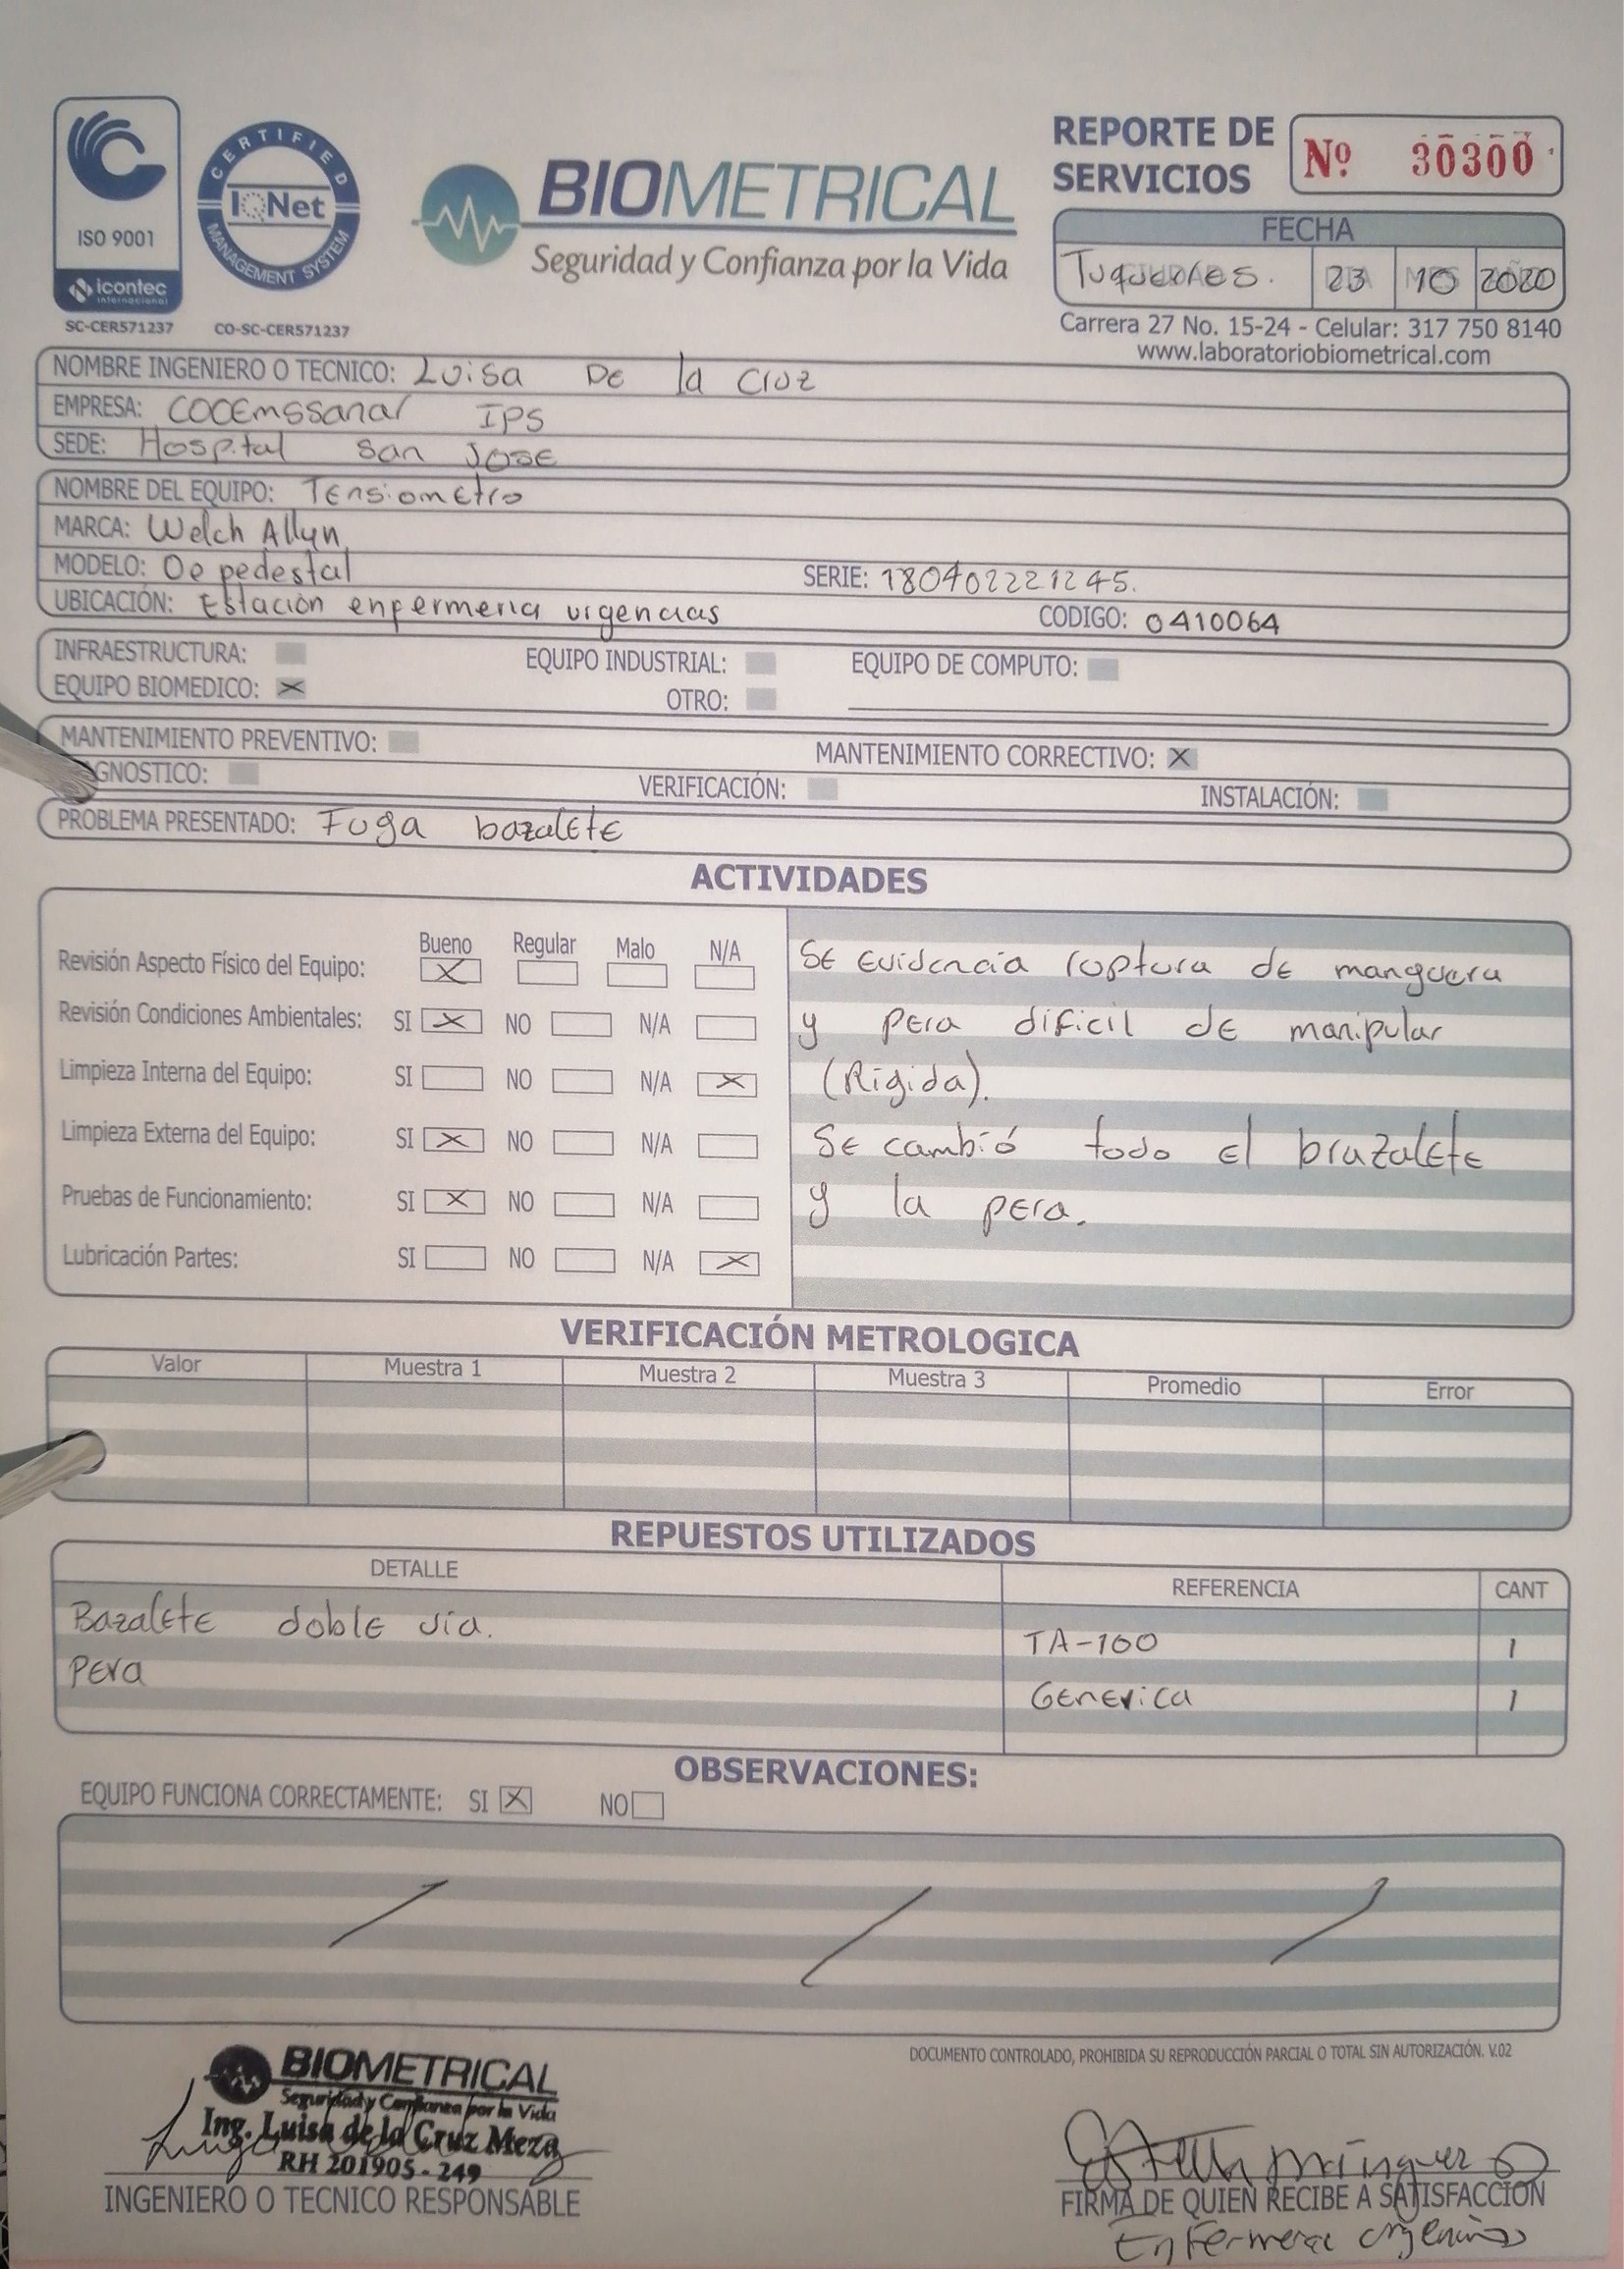 ISO 9001
icontec
internacional
SC-CER571237
CERTIFIED
IQNet
MANAGEMENT SYSTEM
CO-SC-CER571237
BIOMETRICAL
Seguridad y Confianza por la Vida
REPORTE DE
SERVICIOS
Nº 30300
FECHA
Tuquerres. 23 10 2020
Carrera 27 No. 15-24 - Celular: 317 750 8140
www.laboratoriobiometrical.com
NOMBRE INGENIERO O TECNICO: Luisa De la Cruz
EMPRESA: COCEmssanar IPS
SEDE: Hospital San JOSE
NOMBRE DEL EQUIPO: Tensiometro
MARCA: Welch Allyn
MODELO: De pedestal SERIE: 180402221245.
UBICACIÓN: Estación enfermeria urgencias CODIGO: 0410064
INFRAESTRUCTURA: EQUIPO INDUSTRIAL: EQUIPO DE COMPUTO:
EQUIPO BIOMEDICO: X OTRO:
MANTENIMIENTO PREVENTIVO: MANTENIMIENTO CORRECTIVO: X
GNOSTICO: VERIFICACIÓN: INSTALACIÓN:
PROBLEMA PRESENTADO: Fuga bazalete
ACTIVIDADES
Bueno Regular Malo N/A
Revisión Aspecto Físico del Equipo: X
Revisión Condiciones Ambientales: SI X NO N/A
Limpieza Interna del Equipo: SI NO N/A X
Limpieza Externa del Equipo: SI X NO N/A
Pruebas de Funcionamiento: SI X NO N/A
Lubricación Partes: SI NO N/A X
SE Evidencia ruptura de manguera
y pera dificil de manipular
(Rigida).
Se cambió todo el brazalete
y la pera.
VERIFICACIÓN METROLOGICA
Valor Muestra 1 Muestra 2 Muestra 3 Promedio Error
REPUESTOS UTILIZADOS
DETALLE REFERENCIA CANT
Bazalete doble via. TA-100 1
Pera Generica 1
OBSERVACIONES:
EQUIPO FUNCIONA CORRECTAMENTE: SI X NO
DOCUMENTO CONTROLADO, PROHIBIDA SU REPRODUCCIÓN PARCIAL O TOTAL SIN AUTORIZACIÓN. V.02
BIOMETRICAL
Seguridad y Confianza por la Vida
Ing. Luisa de la Cruz Meza
RH 201905-249
INGENIERO O TECNICO RESPONSABLE
FIRMA DE QUIEN RECIBE A SATISFACCION
Enfermera